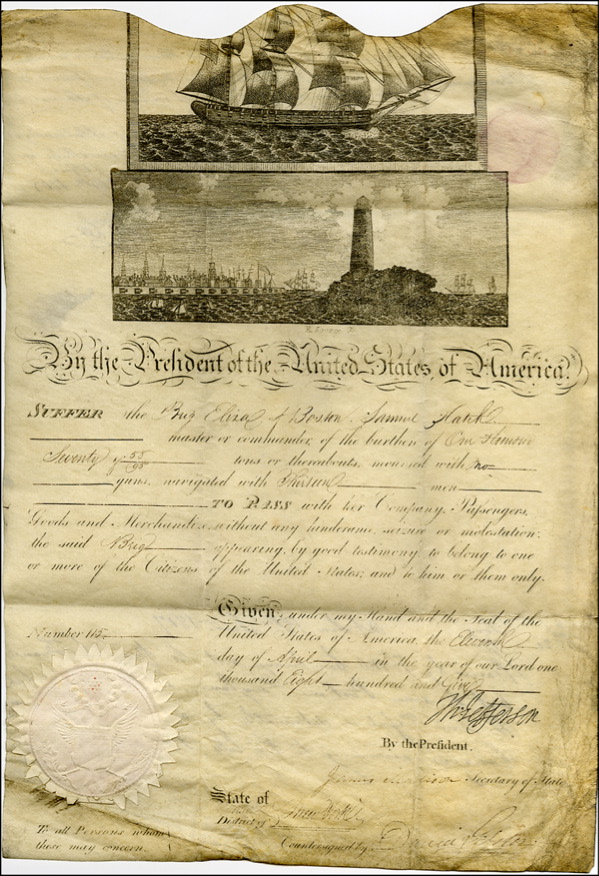 By the President of the United States of America.
SUFFER the Brig Eliza of Boston, Samuel Hatch
master or commander, of the burthen of One Hundred
Seventy 55/95 tons or thereabouts, mounted with no
guns, navigated with Thirteen men
TO PASS with her Company, Passengers,
Goods and Merchandize, without any hinderance, seizure or molestation:
the said Brig appearing, by good testimony to belong to one
or more of the Citizens of the United States; and to him or them only.
Given, under my Hand and the Seal of the
Number 115
United States of America, the Eleventh
day of April in the year of our Lord one
thousand Eight hundred and
Th: Jefferson
By the President.
James Madison Secretary of State
State of
District of New York
Countersigned by David
To all Persons whom
these may concern.